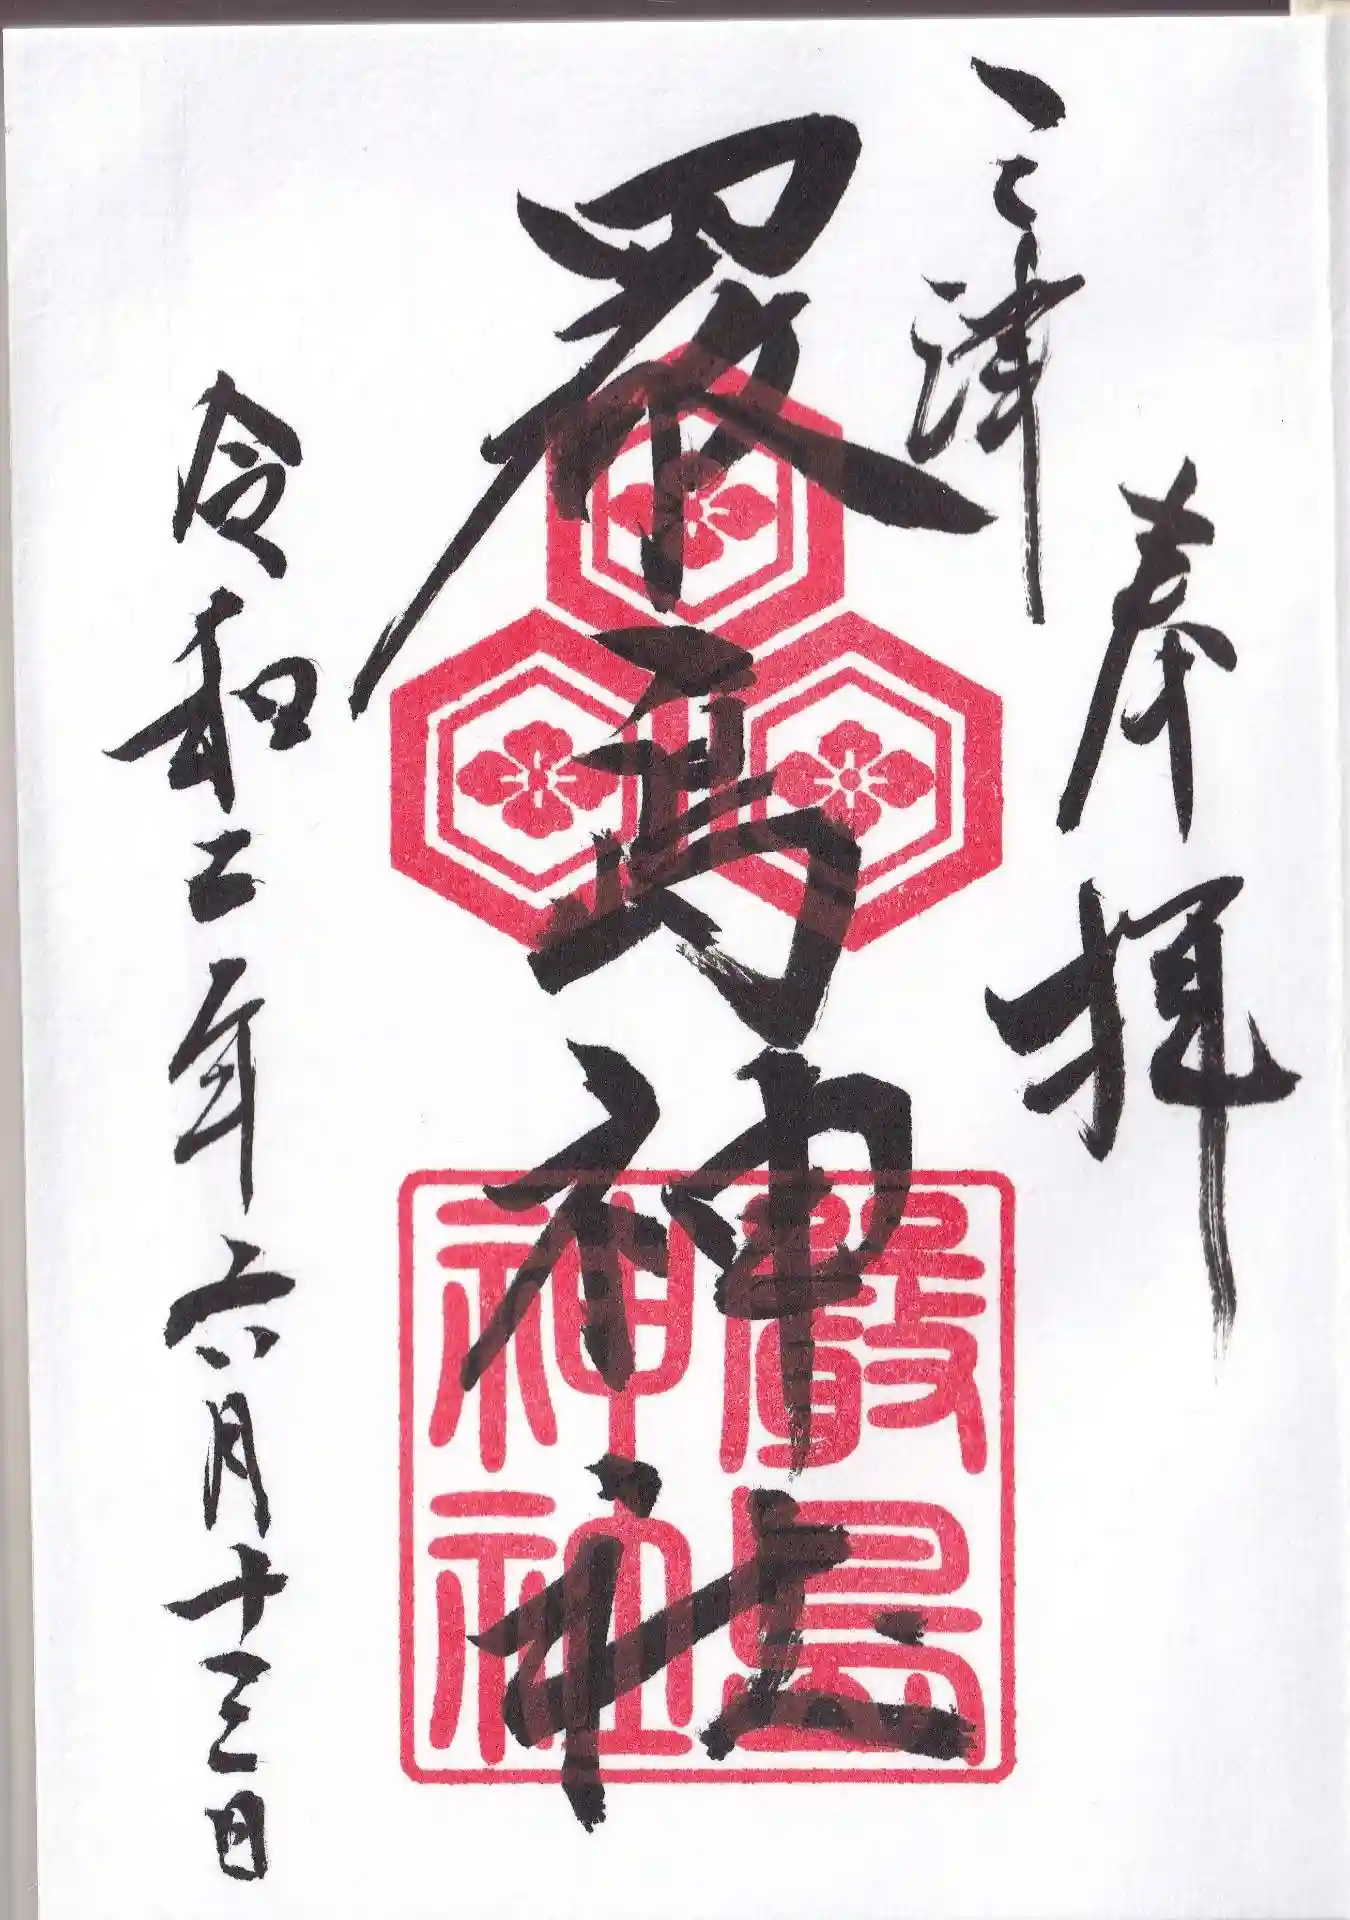 奉拝
三津
厳島神社
令和二年六月十三日
嚴島
神社